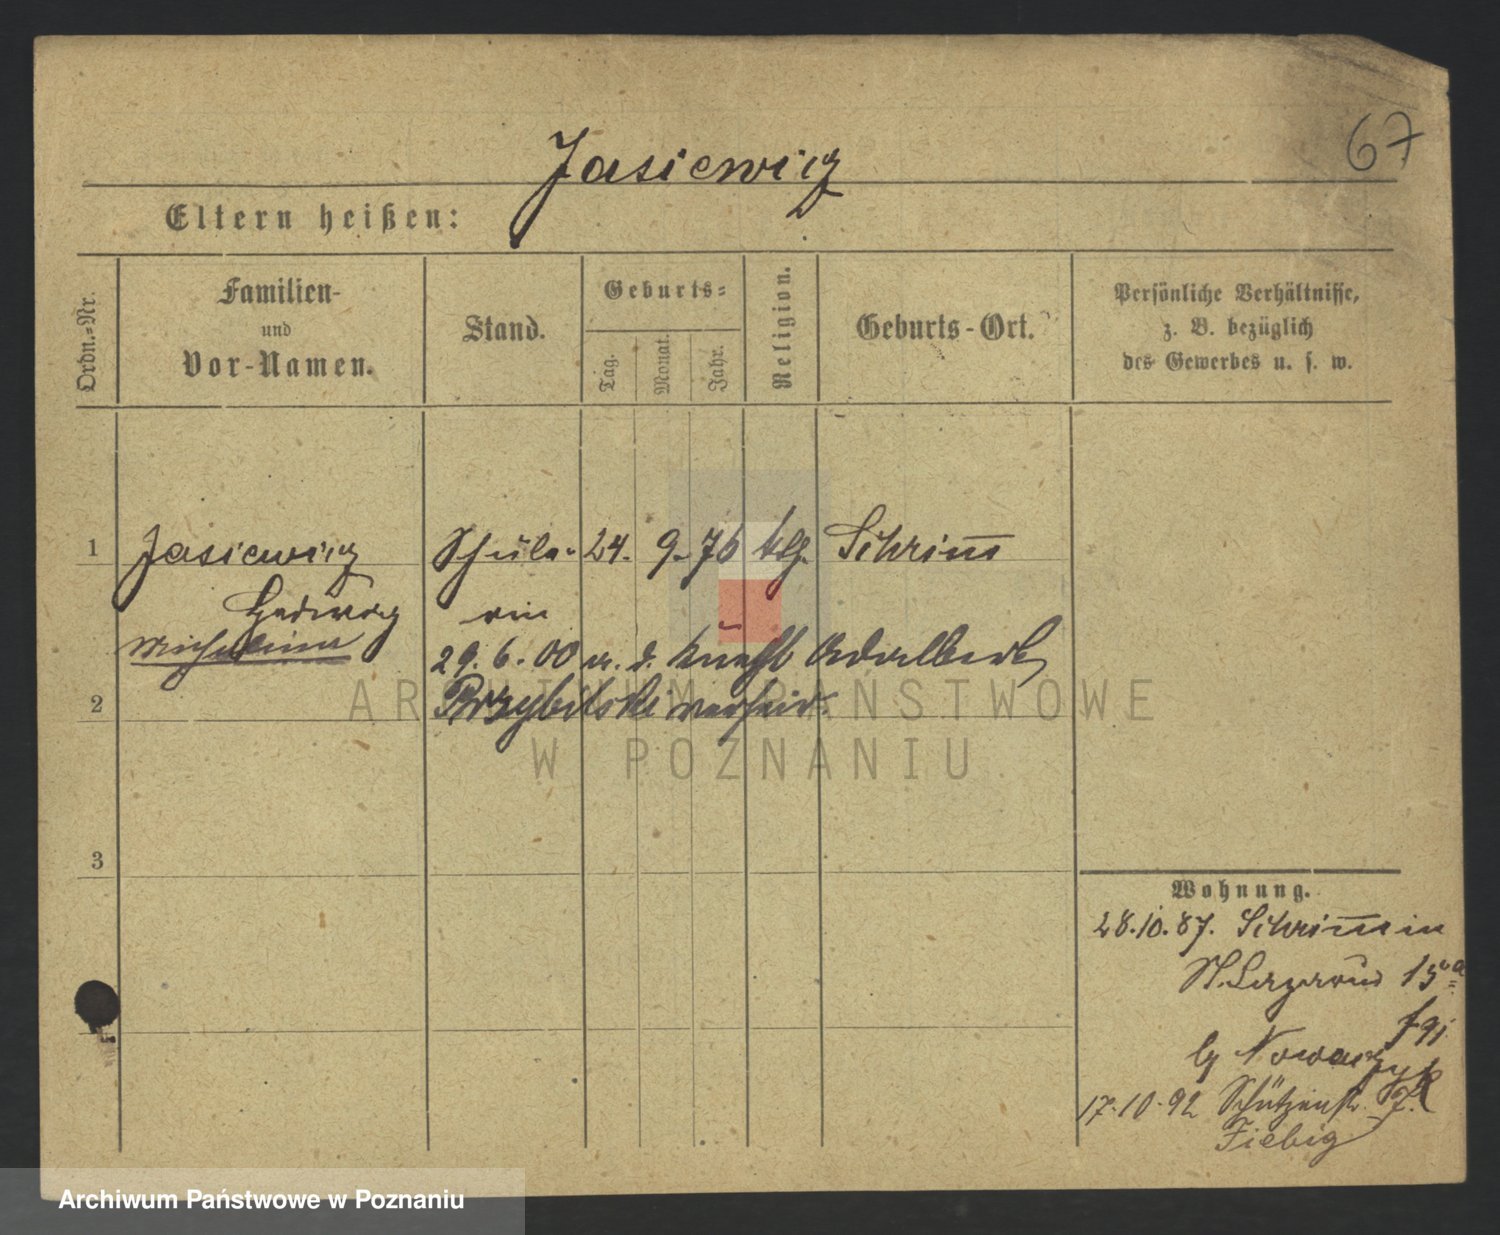 67
Jasiewicz
Eltern heißen:
Ordn.-Nr.
Familien-
und
Vor-Namen.
Stand.
Geburts-
Tag.
Monat.
Jahr.
Religion.
Geburts-Ort.
Persönliche Verhältnisse,
z. B. bezüglich
des Gewerbes u. s. w.
1 Jasiewicz Schüle- 24. 9. 76 ktg. Schrimm
Hedwig rin
Michalina
29. 6. 00 m. d. Knecht Adalbert
2 Przybilski verheir.
ARCHIWUM PAŃSTWOWE
W POZNANIU
3
Wohnung.
28.10.87. Schrimm in
St. Lazarus 15a
f 91
by Nowaczyk
17.10.92 Schützenstr. 7.
Fiebig
Archiwum Państwowe w Poznaniu